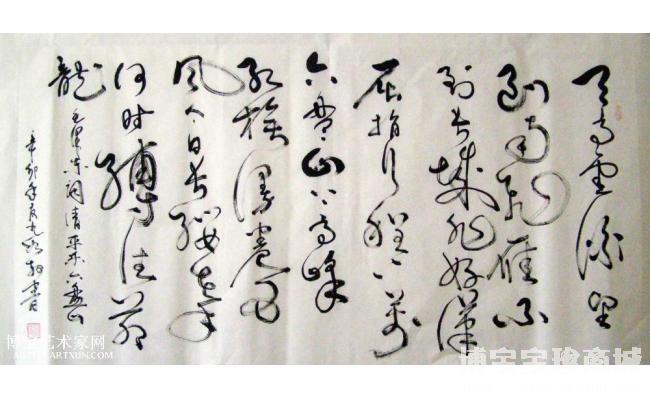 天高雲淡望
断南飛雁不
到长城非好漢
屈指行程二萬
六盘山上高峰
红旗漫卷西
风今日长缨在手
何时缚住苍
龍 毛泽东词清平乐六盘山
辛卯年
博宝艺术家网
ARTIST.ARTXUN.COM
商城